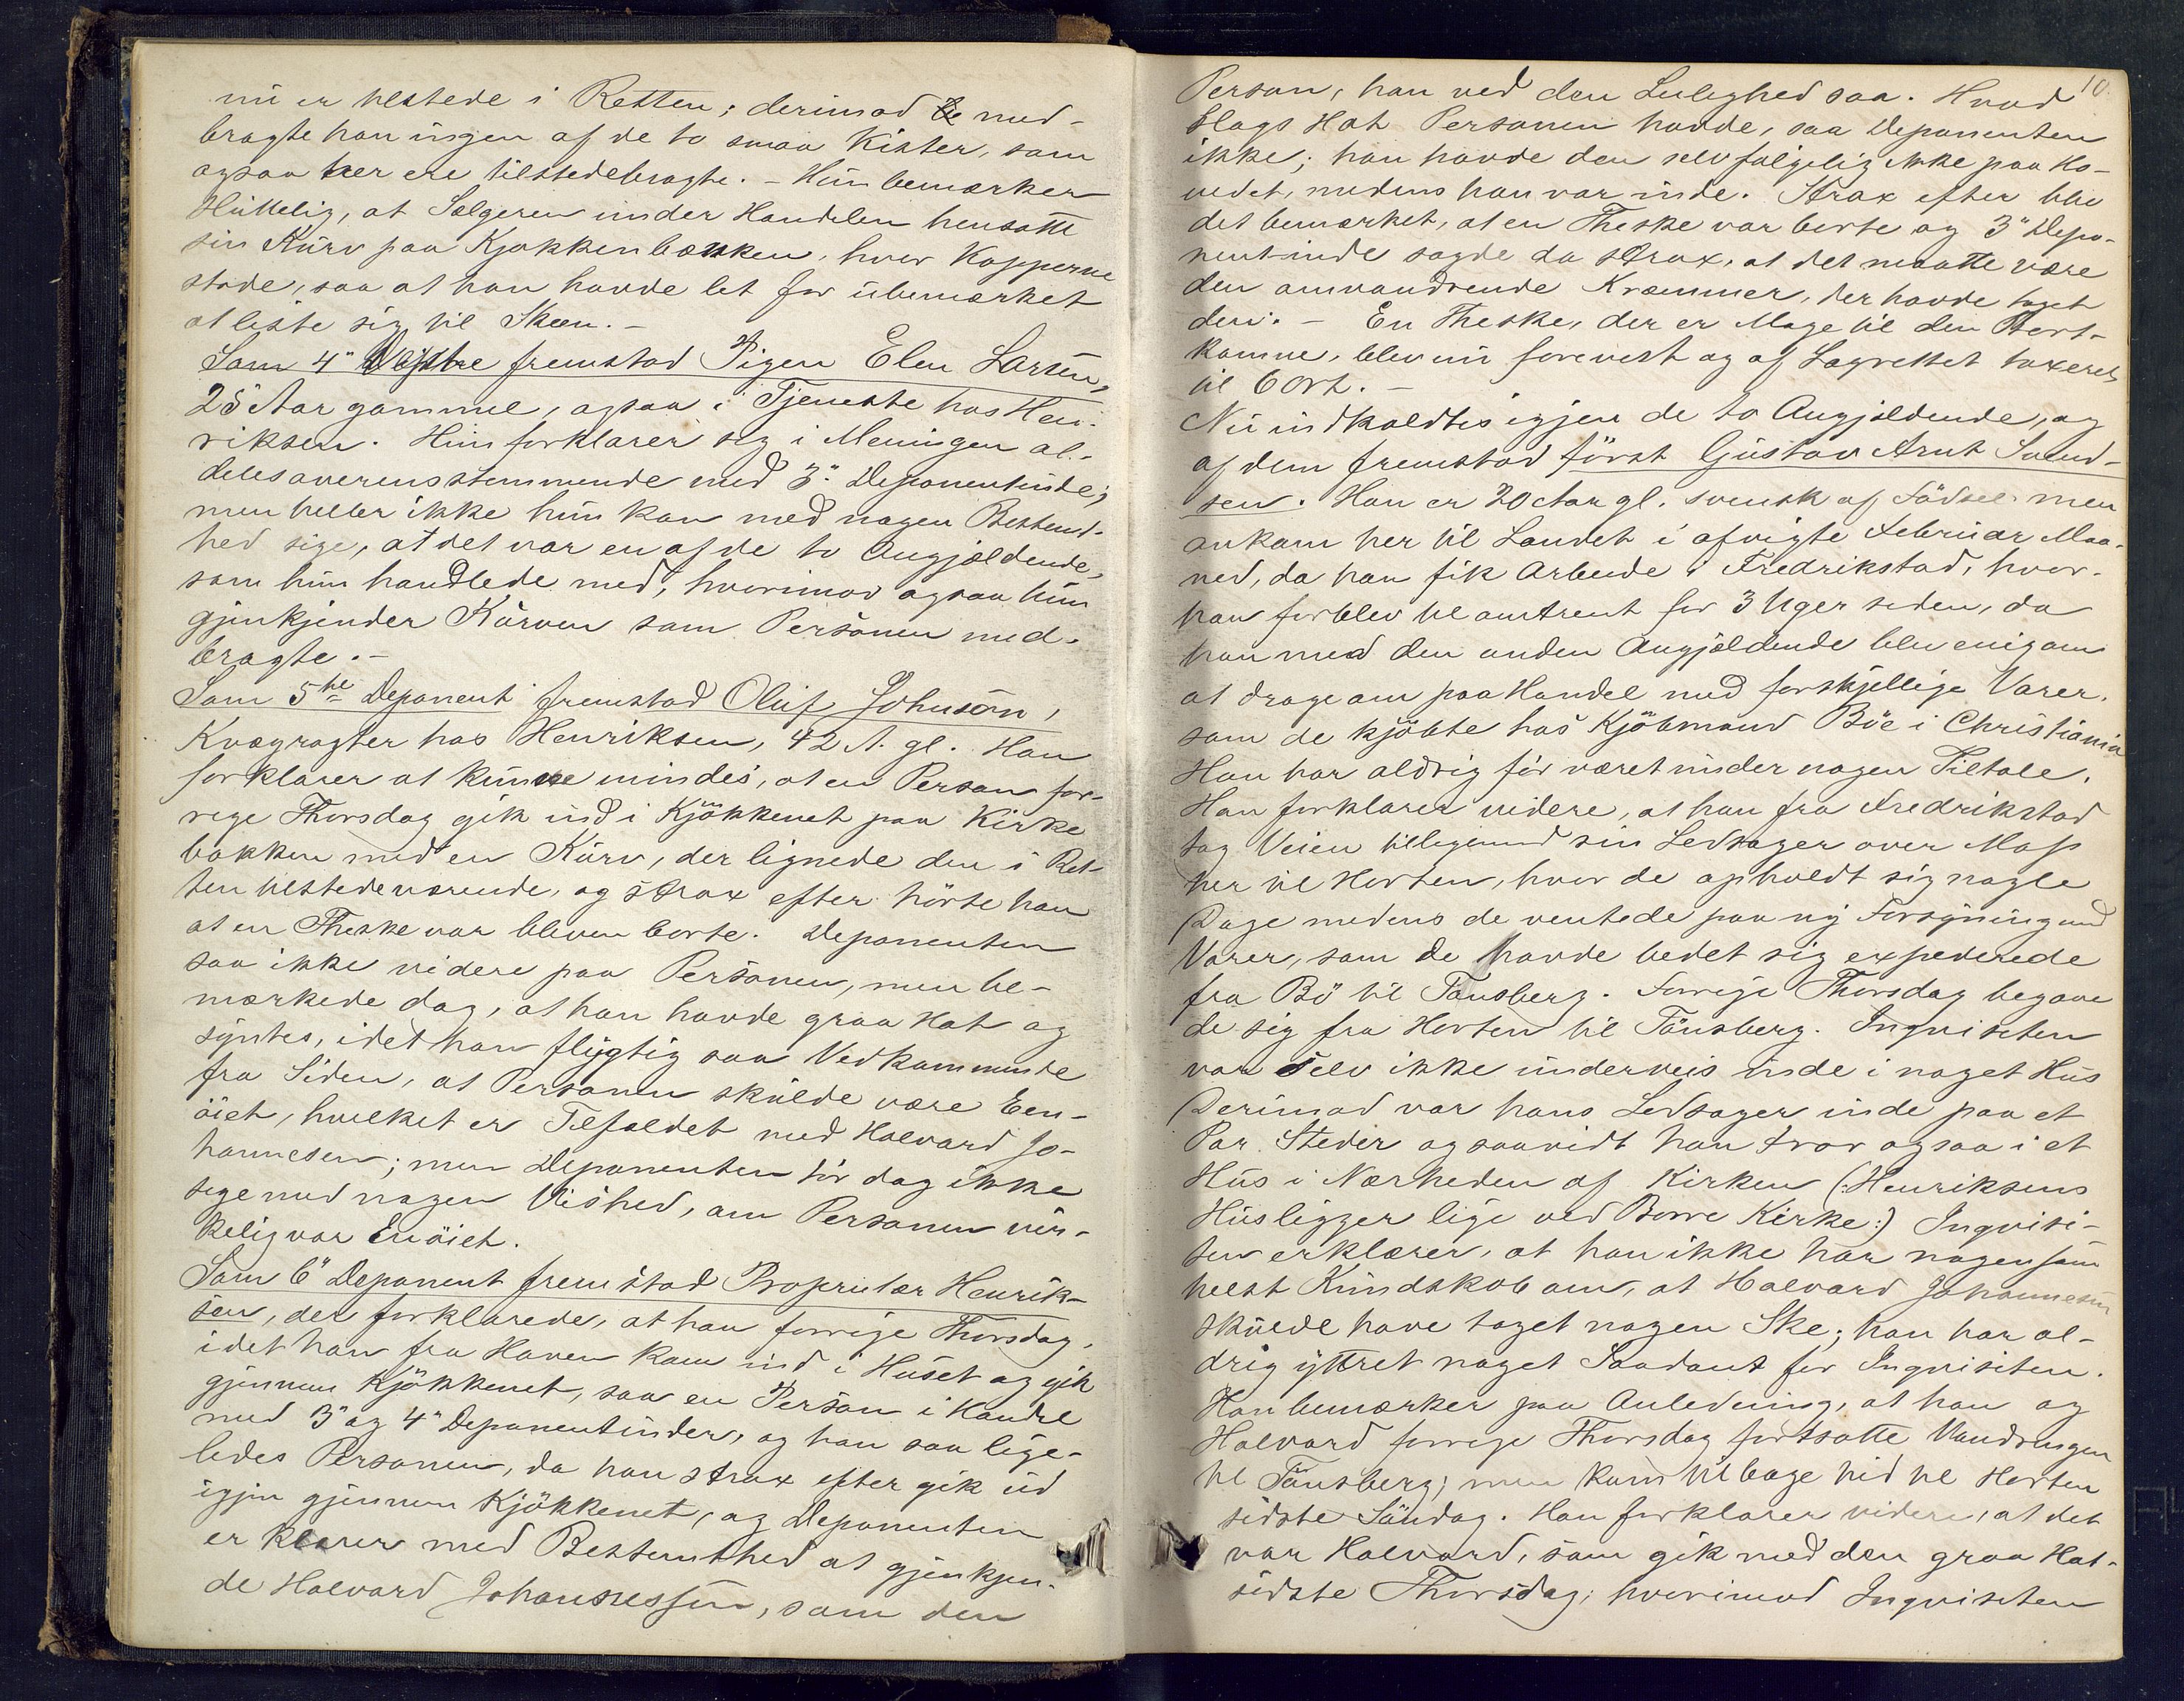 nu er tilstede i Retten; derimod med-
bragte han ingen af de to smaa Kister, som
ogsaa her ere tilstedebragte. – Hun bemærker
, at Sælgeren under Handelen hensatte
sin Kurv paa Kjøkkenbænken, hvor Kopperne
stode, saa at han havde let for ubemærket
at liste sig til Skeen. –
Som 4" fremstod Pigen Elen Larsen,
25 Aar gammel, ogsaa i Tjeneste hos Hen-
riksen. Hun forklarer sig i Meningen al-
deles overensstemmende med 3" Deponentinde;
men heller ikke hun kan med nogen Bestemt-
hed sige, at det var en af de to Angjældende,
som hun handlede med, hvorimod ogsaa hun
gjenkjender Kurven som Personen med-
bragte. –
Som 5te Deponent fremstod Oluf Johnsøn,
Kvægrøgter hos Henriksen, 42 A. gl. Han
forklarer at kunne mindes, at en Person for-
rige Thorsdag gik ind i Kjökkenet paa Kirke
bakken med en Kurv, der lignede den i Ret-
ten tilstedeværende, og strax efter hörte han
at en Theske var bleven borte. Deponenten
saa ikke videre paa Personen, men be-
mærkede dog, at han havde graa Hat og
syntes, idet han flygtig saa Vedkommende
fra Siden, at Personen skulde være Een-
öiet, hvilket er Tilfældet med Halvard Jo-
hannesen; men Deponenten tör dog ikke
sige med nogen Vished, om Personen vir-
kelig var Enöiet.
Som 6" Deponent fremstod Proprietær Henrik-
sen, der forklarede, at han forrige Thorsdag,
idet han fra Haven kom ind i Huset og gik
gjennem Kjökkenet, saa en Person i Handel
med 3" og 4" Deponentinder, og han saa lige-
ledes Personen, da han strax efter gik ud
igjen gjennem Kjökkenet, og Deponenten
erklærer med Bestemthed at gjenkjen-
de Halvard Johannessen, som den
10.
Person, han ved den Leilighed saa. Hvad
Slags Hat Personen havde, saa Deponenten
ikke; han havde den selvfølgelig ikke paa Ho-
vedet, medens han var inde. Strax efter blev
det bemærket, at en Theske var borte og 3" Depo-
nentinde sagde da strax, at det maatte være
den omvandrende Kræmmer, der havde taget
den. – En Theske, der er Mage til den Bort-
komne, blev nu forevist og af Lagrettet taxeret
til 6 Ort. –
Nu indkaldtes igjen de to Angjældende, og
af dem fremstod först Gustav Arnt Svend-
sen. Han er 20 Aar gl. svensk af Födsel men
ankom her til Landet i afvigte Februar Maa-
ned, da han fik Arbeide i Fredrikstad, hvor-
han forblev til omtrent for 3 Uger siden, da
han med den anden Angjældende blev enig om
at drage om paa Handel med forskjellige Varer,
som de kjöbte hos Kjöbmand Böe i Christiania
Han har aldrig för været under nogen Tiltale.
Han forklarer videre, at han fra Fredrikstad
tog Veien tilligemed sin Ledsager over Moss
her til Horten, hvor de opholdt sig nogle
Dage medens de ventede paa ny Forsyning med
Varer, som de havde bedet sig expederede
fra Bö til Tønsberg. Forrige Thorsdag begave
de sig fra Horten til Tönsberg. Inqvisiten
var selv ikke underveis inde i noget Hus
Derimod var hans Ledsager inde paa et
Par Steder og saavidt han tror ogsaa i et
Hus i Nærheden af Kirken (:Henriksens
Hus ligger lige ved Borre Kirke:) Inqvisi-
ten erklærer, at han ikke har nogensom
helst Kundskab om, at Halvard Johannesen
skulde have taget nogen Ske; han har al-
drig yttret noget Saadant for Inqvisiten.
Han bemærker paa Anledning, at han og
Halvard forrige Thorsdag fortsatte Vandringen
til Tönsberg; men kom tilbage hid til Horten
sidste Söndag. Han forklarer videre, at det
var Halvard, som gik med den graa Hat
sidste Thorsdag, hvorimod Inqvisiten